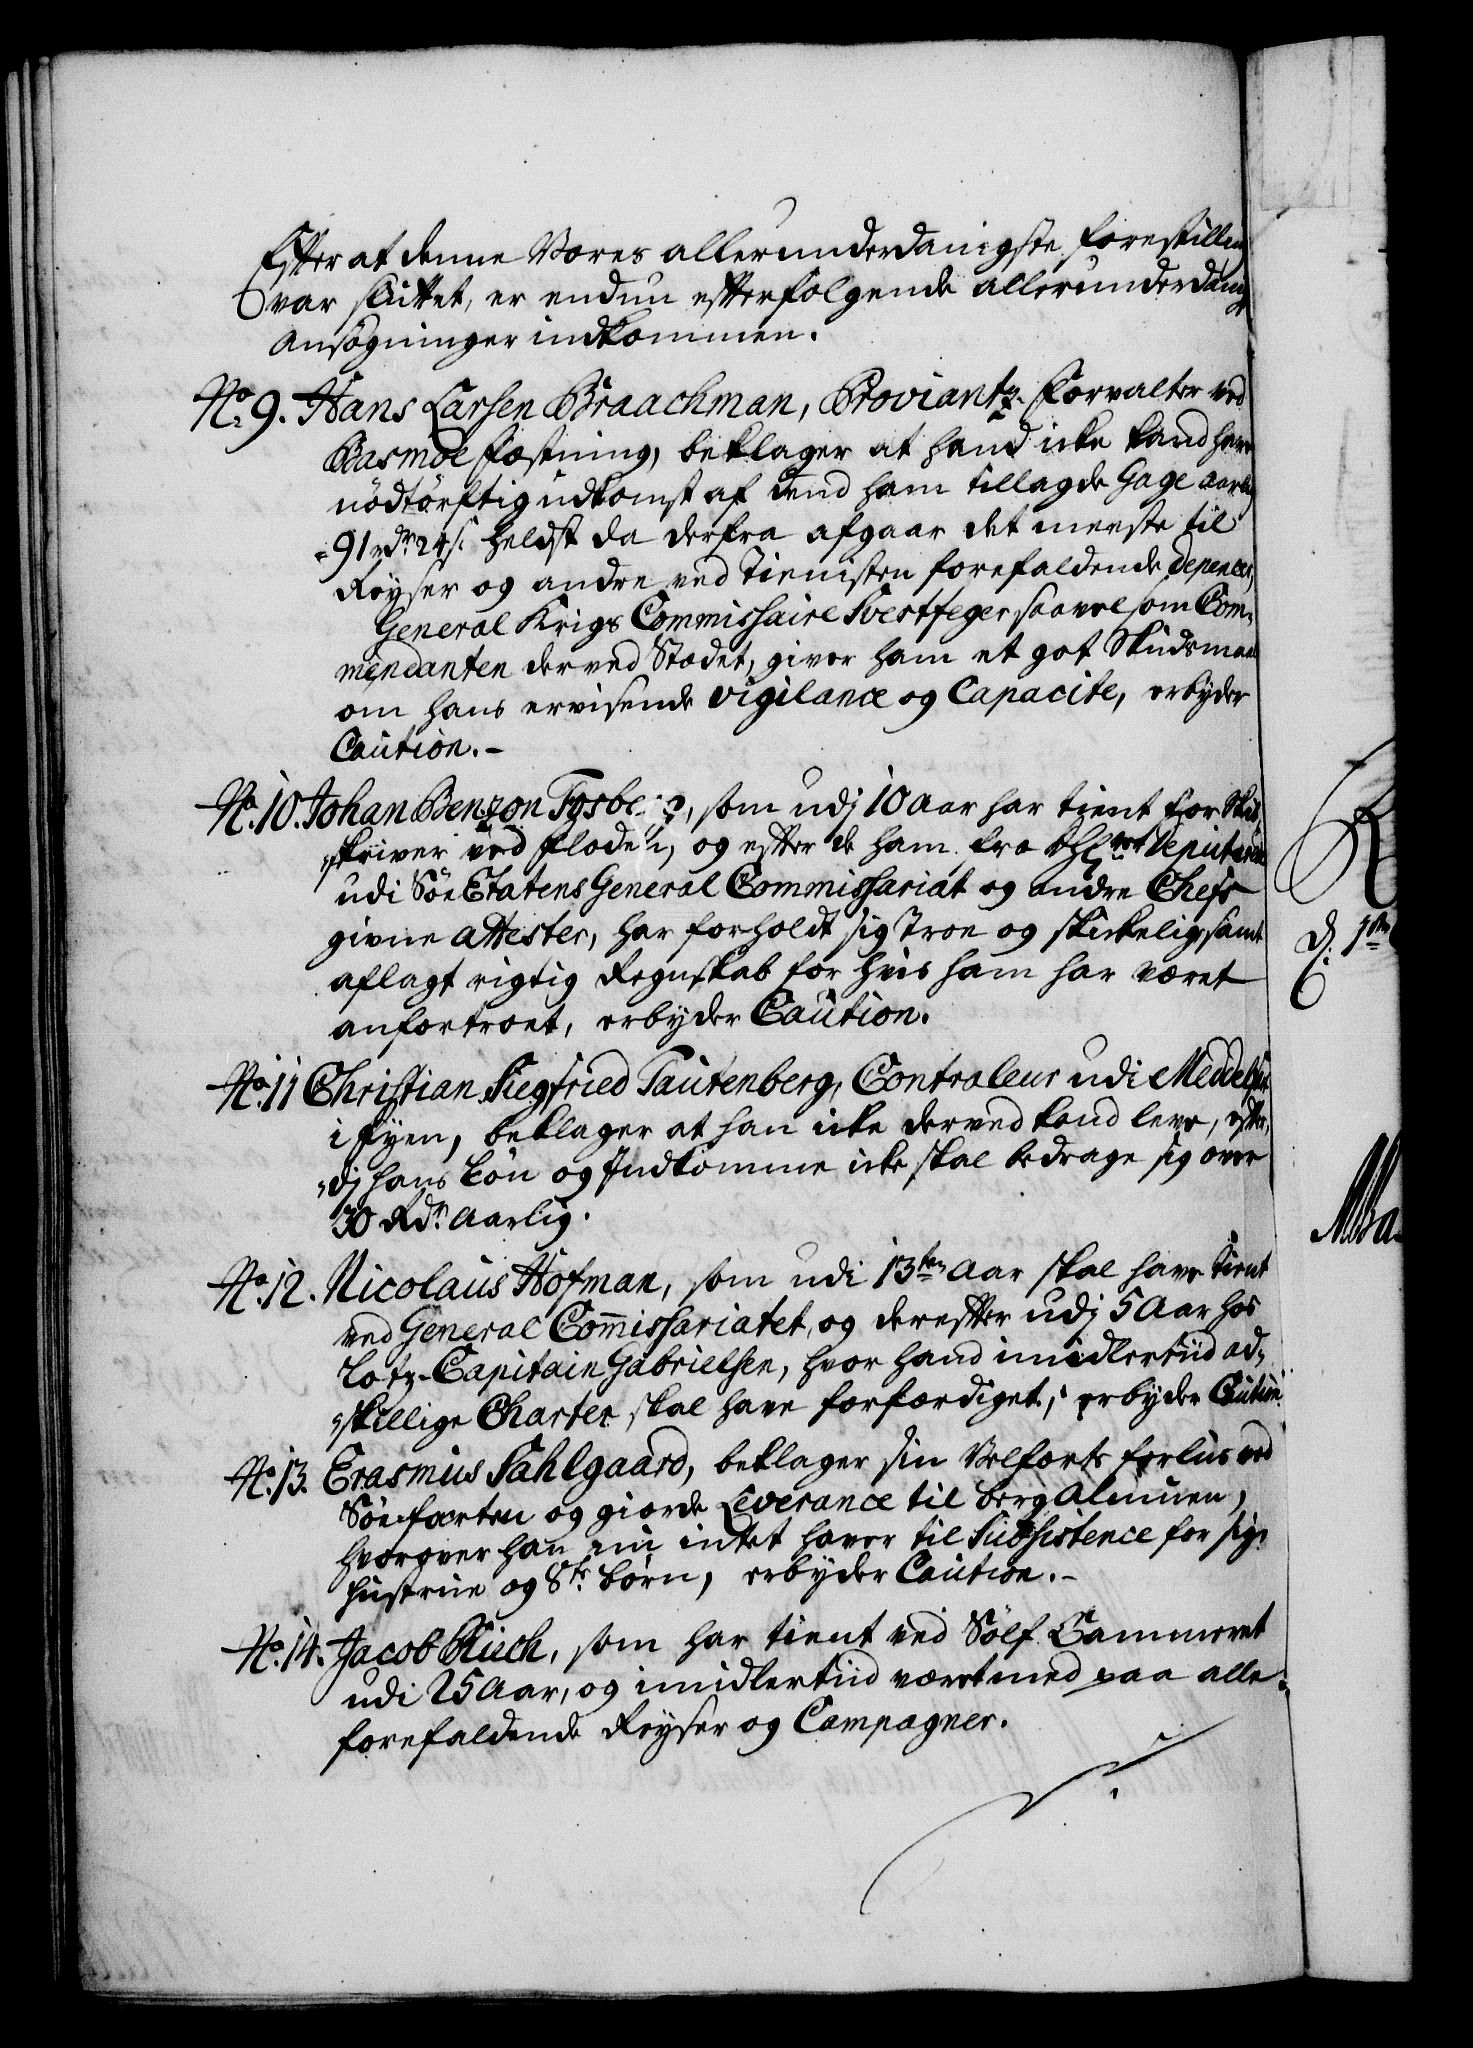 Efter at denne Vores allerunderdanigste forestilling
var sluttet, er endnu efterfølgende allerunderdanig
ansøgninger indkommen.
No. 9. Hans Larsen Braachman, Proviantz-Forvalter ved
Basmoe fæstning, beklager at hand icke kand have
nödtörftig udkomst af dend ham tillagde Gage aarlig
91 rdr 24 s. heldst da derfra afgaar det meeste til
Reyser og andre ved Tienisten forefaldende depences,
General Krigs Commissaire Svestfeger saavelsom Com-
mendanten der ved Stædet, giver ham et got Skudsmaal
om hans ervisende vigilance og Capacite, erbyder
Caution.-
No. 10. Johan Benzon Fosberg, som udj 10 Aar har tient for Skibs-
skriver ved floden, og efter de ham fra Deputerede
udi Söe Etatens General Commissariat og andre Chefs
givne attester, har forholdt sig troe og skickelig, samt
aflagt rigtig Regnskab for hvis ham har været
anfortroet, erbyder Caution.
No. 11 Christian Siegfried Tautenberg, Controleur udi Meddelfart
i Fyen, beklager at han icke derved kand leve, efter-
dj hans Lön og Indkomme icke skal bedrage sig over
30 Rdr. Aarlig.
No. 12. Nicolaus Hofman, som udi 13ten Aar skal have tient
ved General Commissariatet, og derefter udj 5 Aar hos
Lotz-Capitain Gabrielsen, hvor hand imidlertiid ad-
skillige Charter skal have forfærdiget, erbyder Caution.
No. 13. Erasmus Sahlgaard, beklager sin Velferts forliis ved
Söefarten og giorde Leverance til berg Alunen,
hvorover han nu intet haver til Subsistence for sig,
hustrue og 8te börn, erbyder Caution.-
No. 14. Jacob Buch, som har tient ved Sölf Cammeret
udi 25 Aar, og imidlertiid været med paa alle
forefaldende Reyser og Campagner.